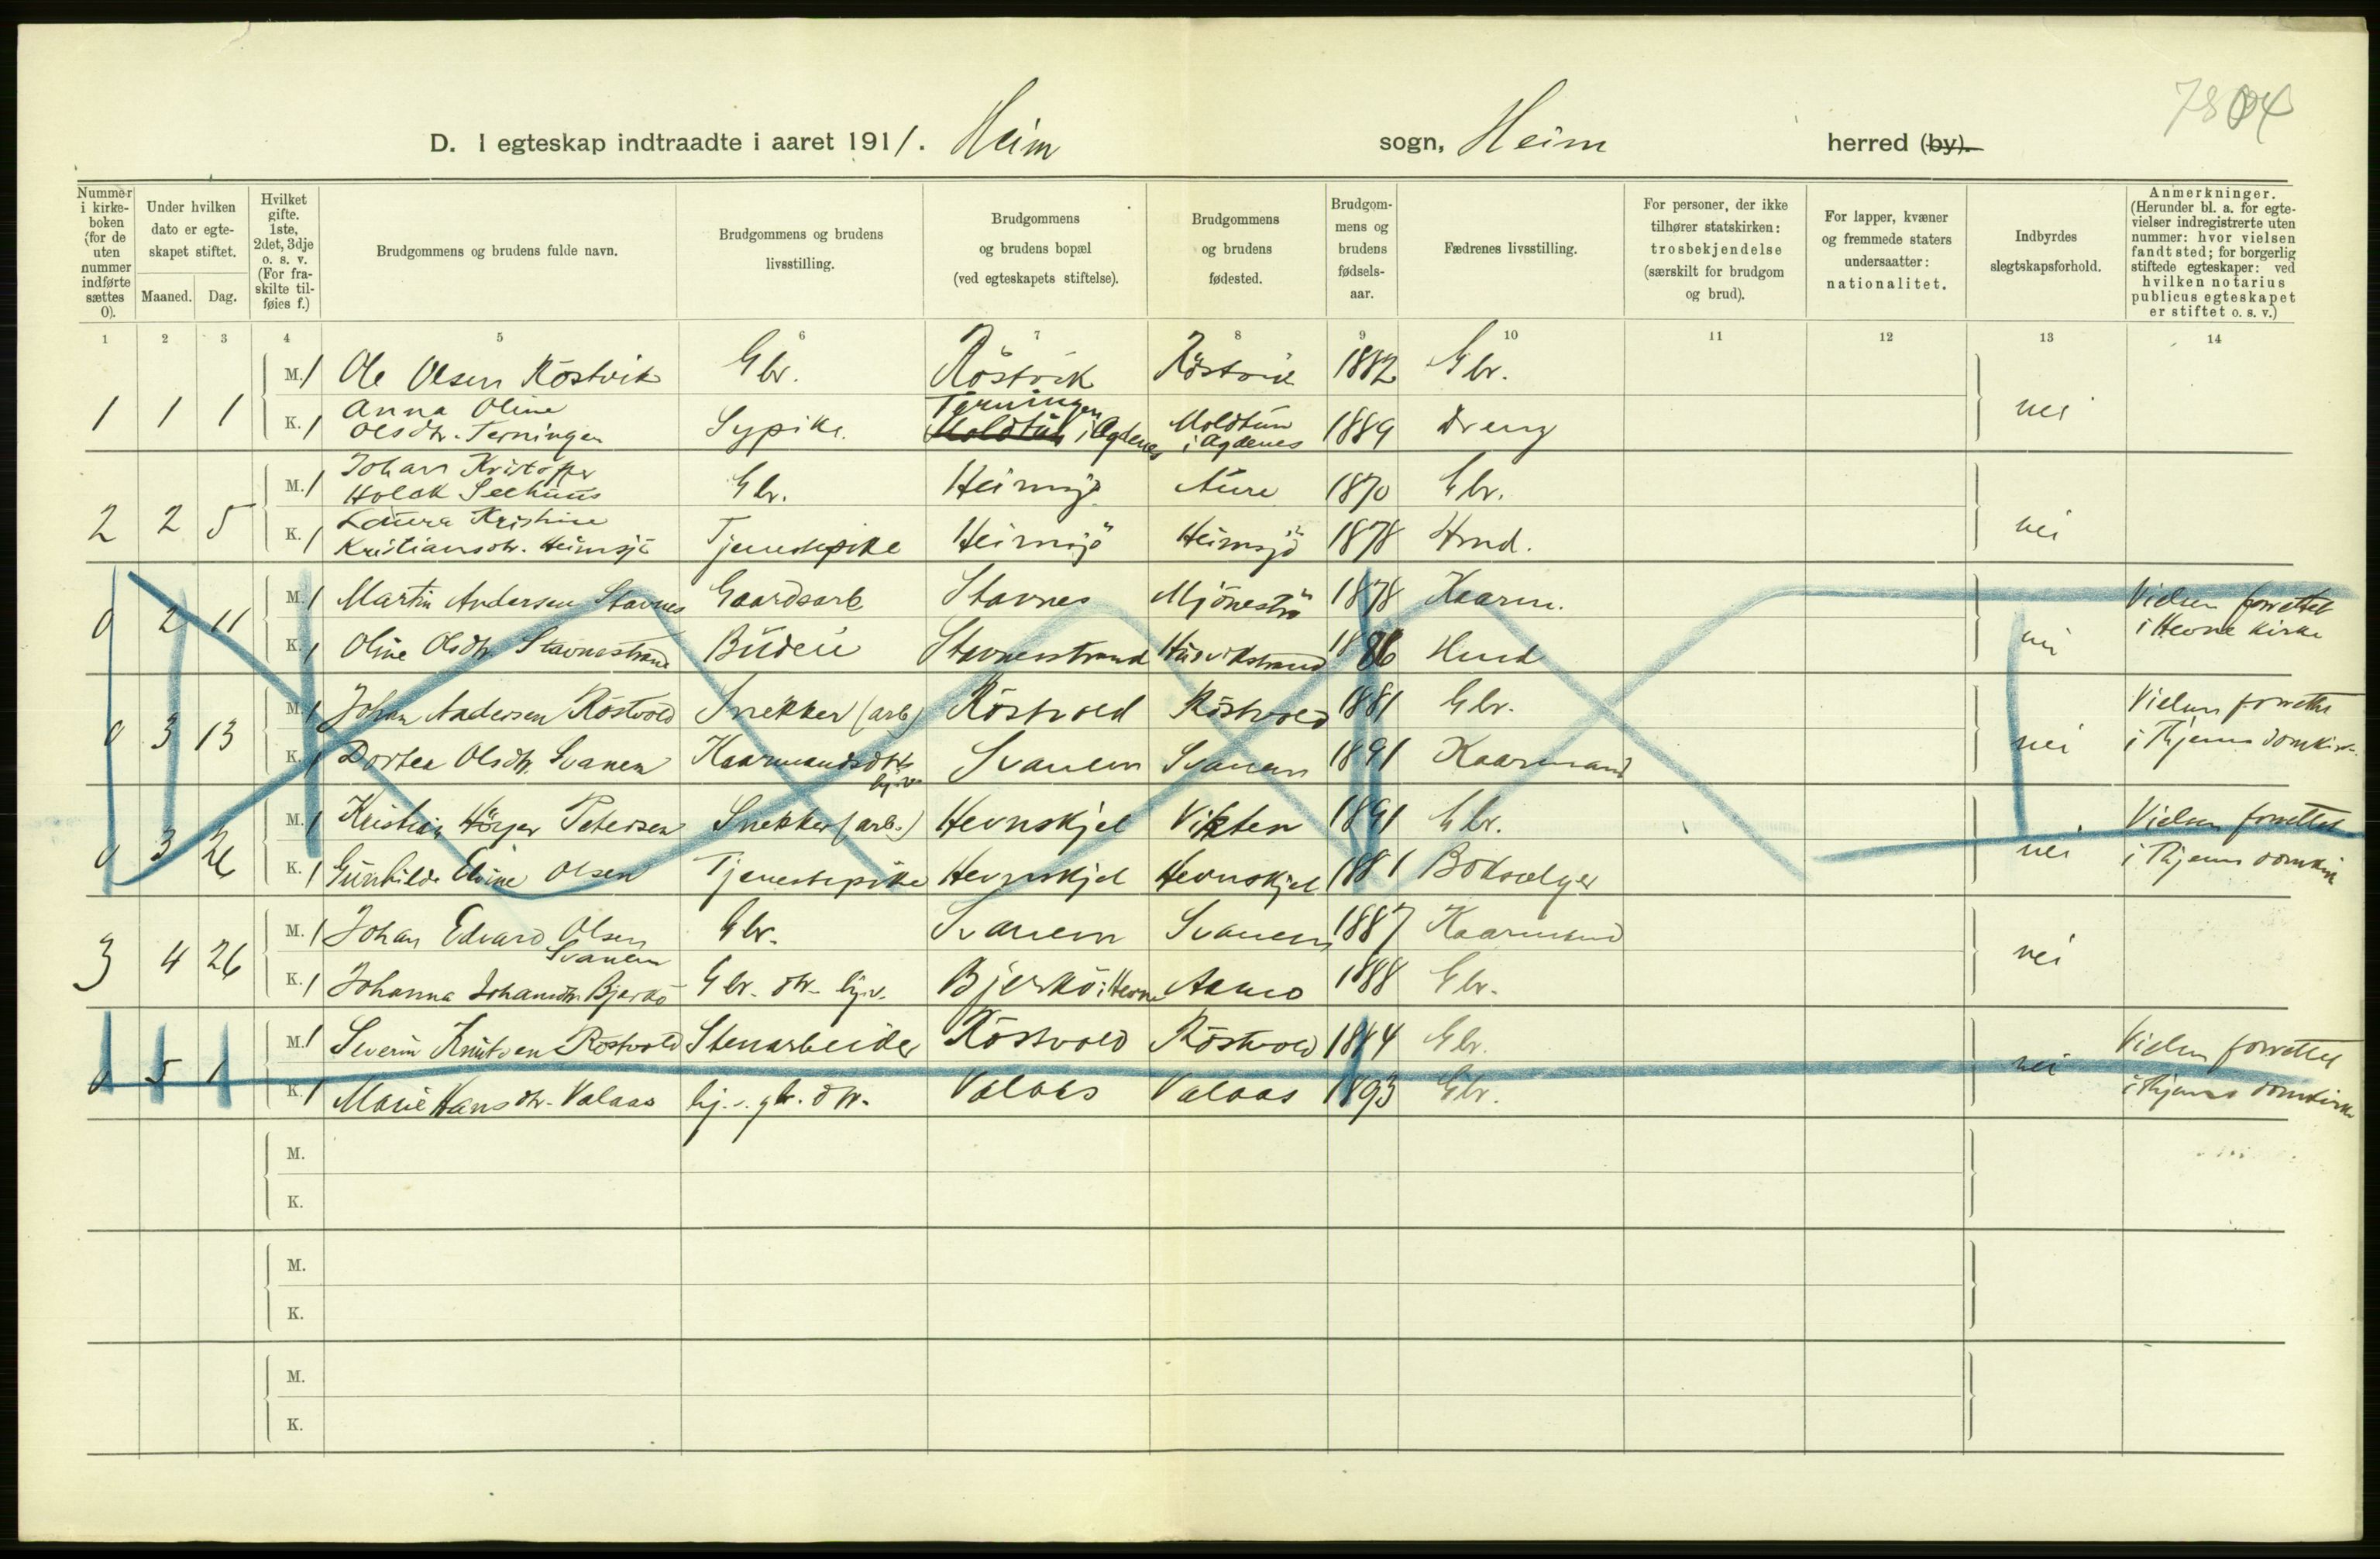 D. I egteskap indtraadte i aaret 1911. Heim sogn, Heim herred (by).
Nummer i kirke-boken (for de uten nummer indførte sættes 0).
Under hvilken dato er egte-skapet stiftet.
Maaned. Dag.
Hvilket gifte. 1ste, 2det, 3dje o. s. v. (For fra-skilte til-føies f.)
Brudgommens og brudens fulde navn.
Brudgommens og brudens livsstilling.
Brudgommens og brudens bopæl (ved egteskapets stiftelse).
Brudgommens og brudens fødested.
Brudgom-mens og brudens fødsels-aar.
Fædrenes livsstilling.
For personer, der ikke tilhører statskirken: trosbekjendelse (særskilt for brudgom og brud).
For lapper, kvæner og fremmede staters undersaatter: nationalitet.
Indbyrdes slegtskapsforhold.
Anmerkninger. (Herunder bl. a. for egte-vielser indregistrerte uten nummer: hvor vielsen fandt sted; for borgerlig stiftede egteskaper: ved hvilken notarius publicus egteskapet er stiftet o. s. v.)
1 2 3 4 5 6 7 8 9 10 11 12 13 14
M. 1 Ole Olsen Röstvik Gbr. Röstvik Röstvik 1882 Gbr.
1 1 1 K. 1 Anna Oline Olsdtr. Terningen Sypike. Terningen Moldtun i Agdenes Moldtun i Agdenes 1889 Dreng nei
M. 1 Johan Kristofer Holck Seehuus Gbr. Heimsjö Aure 1870 Gbr.
2 2 5 K. 1 Laura Kristine Kristiansdtr. Heimsjö Tjenestepike Heimsjö Heimsjö 1878 Hmd. nei
M. 1 Martin Andersen Stavnes Gaardsarb Stavnes 1878 Kaarm. Vielsen forrettet
0 2 11 K. 1 Oline Olsdtr Stavnestrand Büdeie Stavnestrand 1886 Hmd nei i Hevne kirke
M. 1 Johan Andersen Röstvold Snekker (arb) Röstvold Röstvold 1881 Gbr. Vielsen forrettet
0 3 13 K. 1 Dortea Olsdtr. Svanem Kaarmandsdtr Svanem Svanem 1891 Kaarmand nei i Thjems domkirke
M. 1 Kristian Petersen Snekker (arb.) Hevnskjel Vikten 1891 Gbr. Vielsen forrettet
0 3 26 K. 1 Gunhilde Elvine Olsen Tjenestepike Hevnskjel Hevnskjel 1881 Boksælger nei i Thjems domkirk
M. 1 Johan Edvard Olsen Svanem Gbr. Svanem Svanem 1887 Kaarmand
3 4 26 K. 1 Johanna Johansdtr. Bjerkö Gbr. dtr. hjv. Bjerkö i Hevne 1888 Gbr. nei
M. 1 Severin Knutsen Röstvold Stenarbeider Röstvold Röstvold 1884 Gbr. Vielsen forrettet
0 5 1 K. 1 Marie Hansdtr. Valaas hj.v. gbr. dtr. Valaas Valaas 1893 Gbr. nei i Thjems domkirke
M.
K.
M.
K.
M.
K.